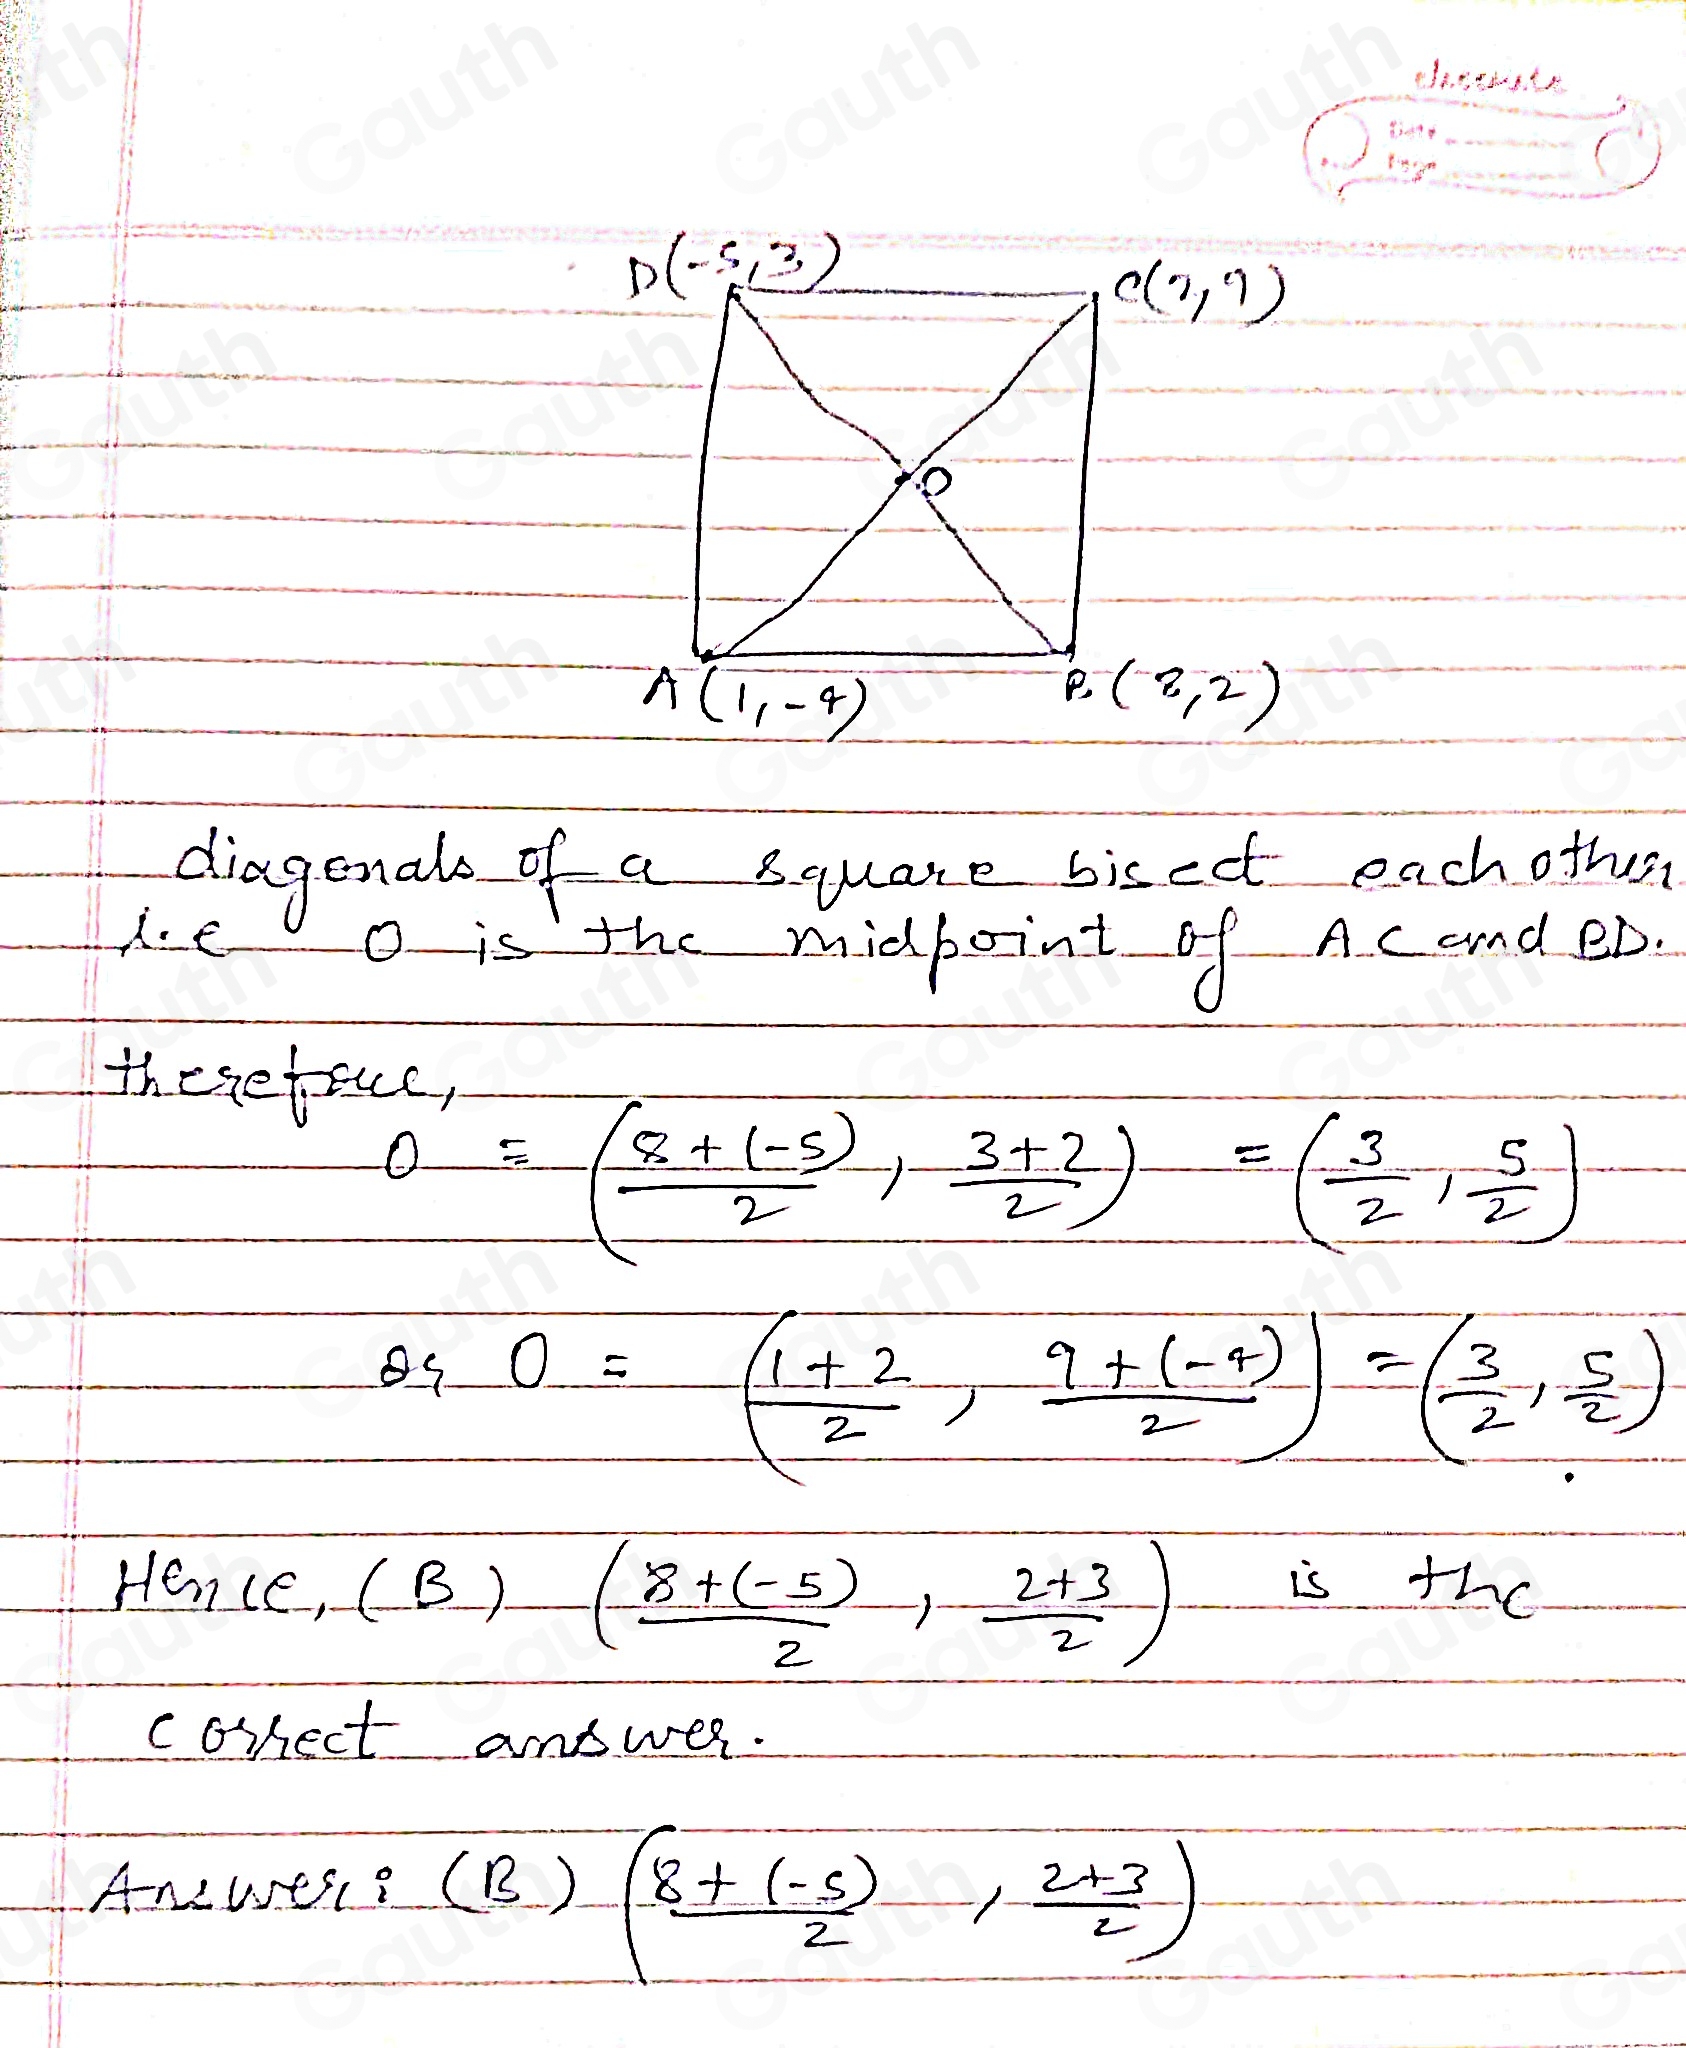 classmate
Date
Page
D(-5,3)
C(2,9)
O
A(1,-4)
B(8,2)
diagonals of a square bisect each other
i.e O is the midpoint of AC and BD.
therefore,
O = ( (8+(-5))/2 , (3+2)/2 ) = ( 3/2 , 5/2 )
or O = ( (1+2)/2 , (9+(-4))/2 ) = ( 3/2 , 5/2 ).
Hence, (B) ( (8+(-5))/2 , (2+3)/2 ) is the
correct answer.
Answer: (B) ( (8+(-5))/2 , (2+3)/2 )
Gauth